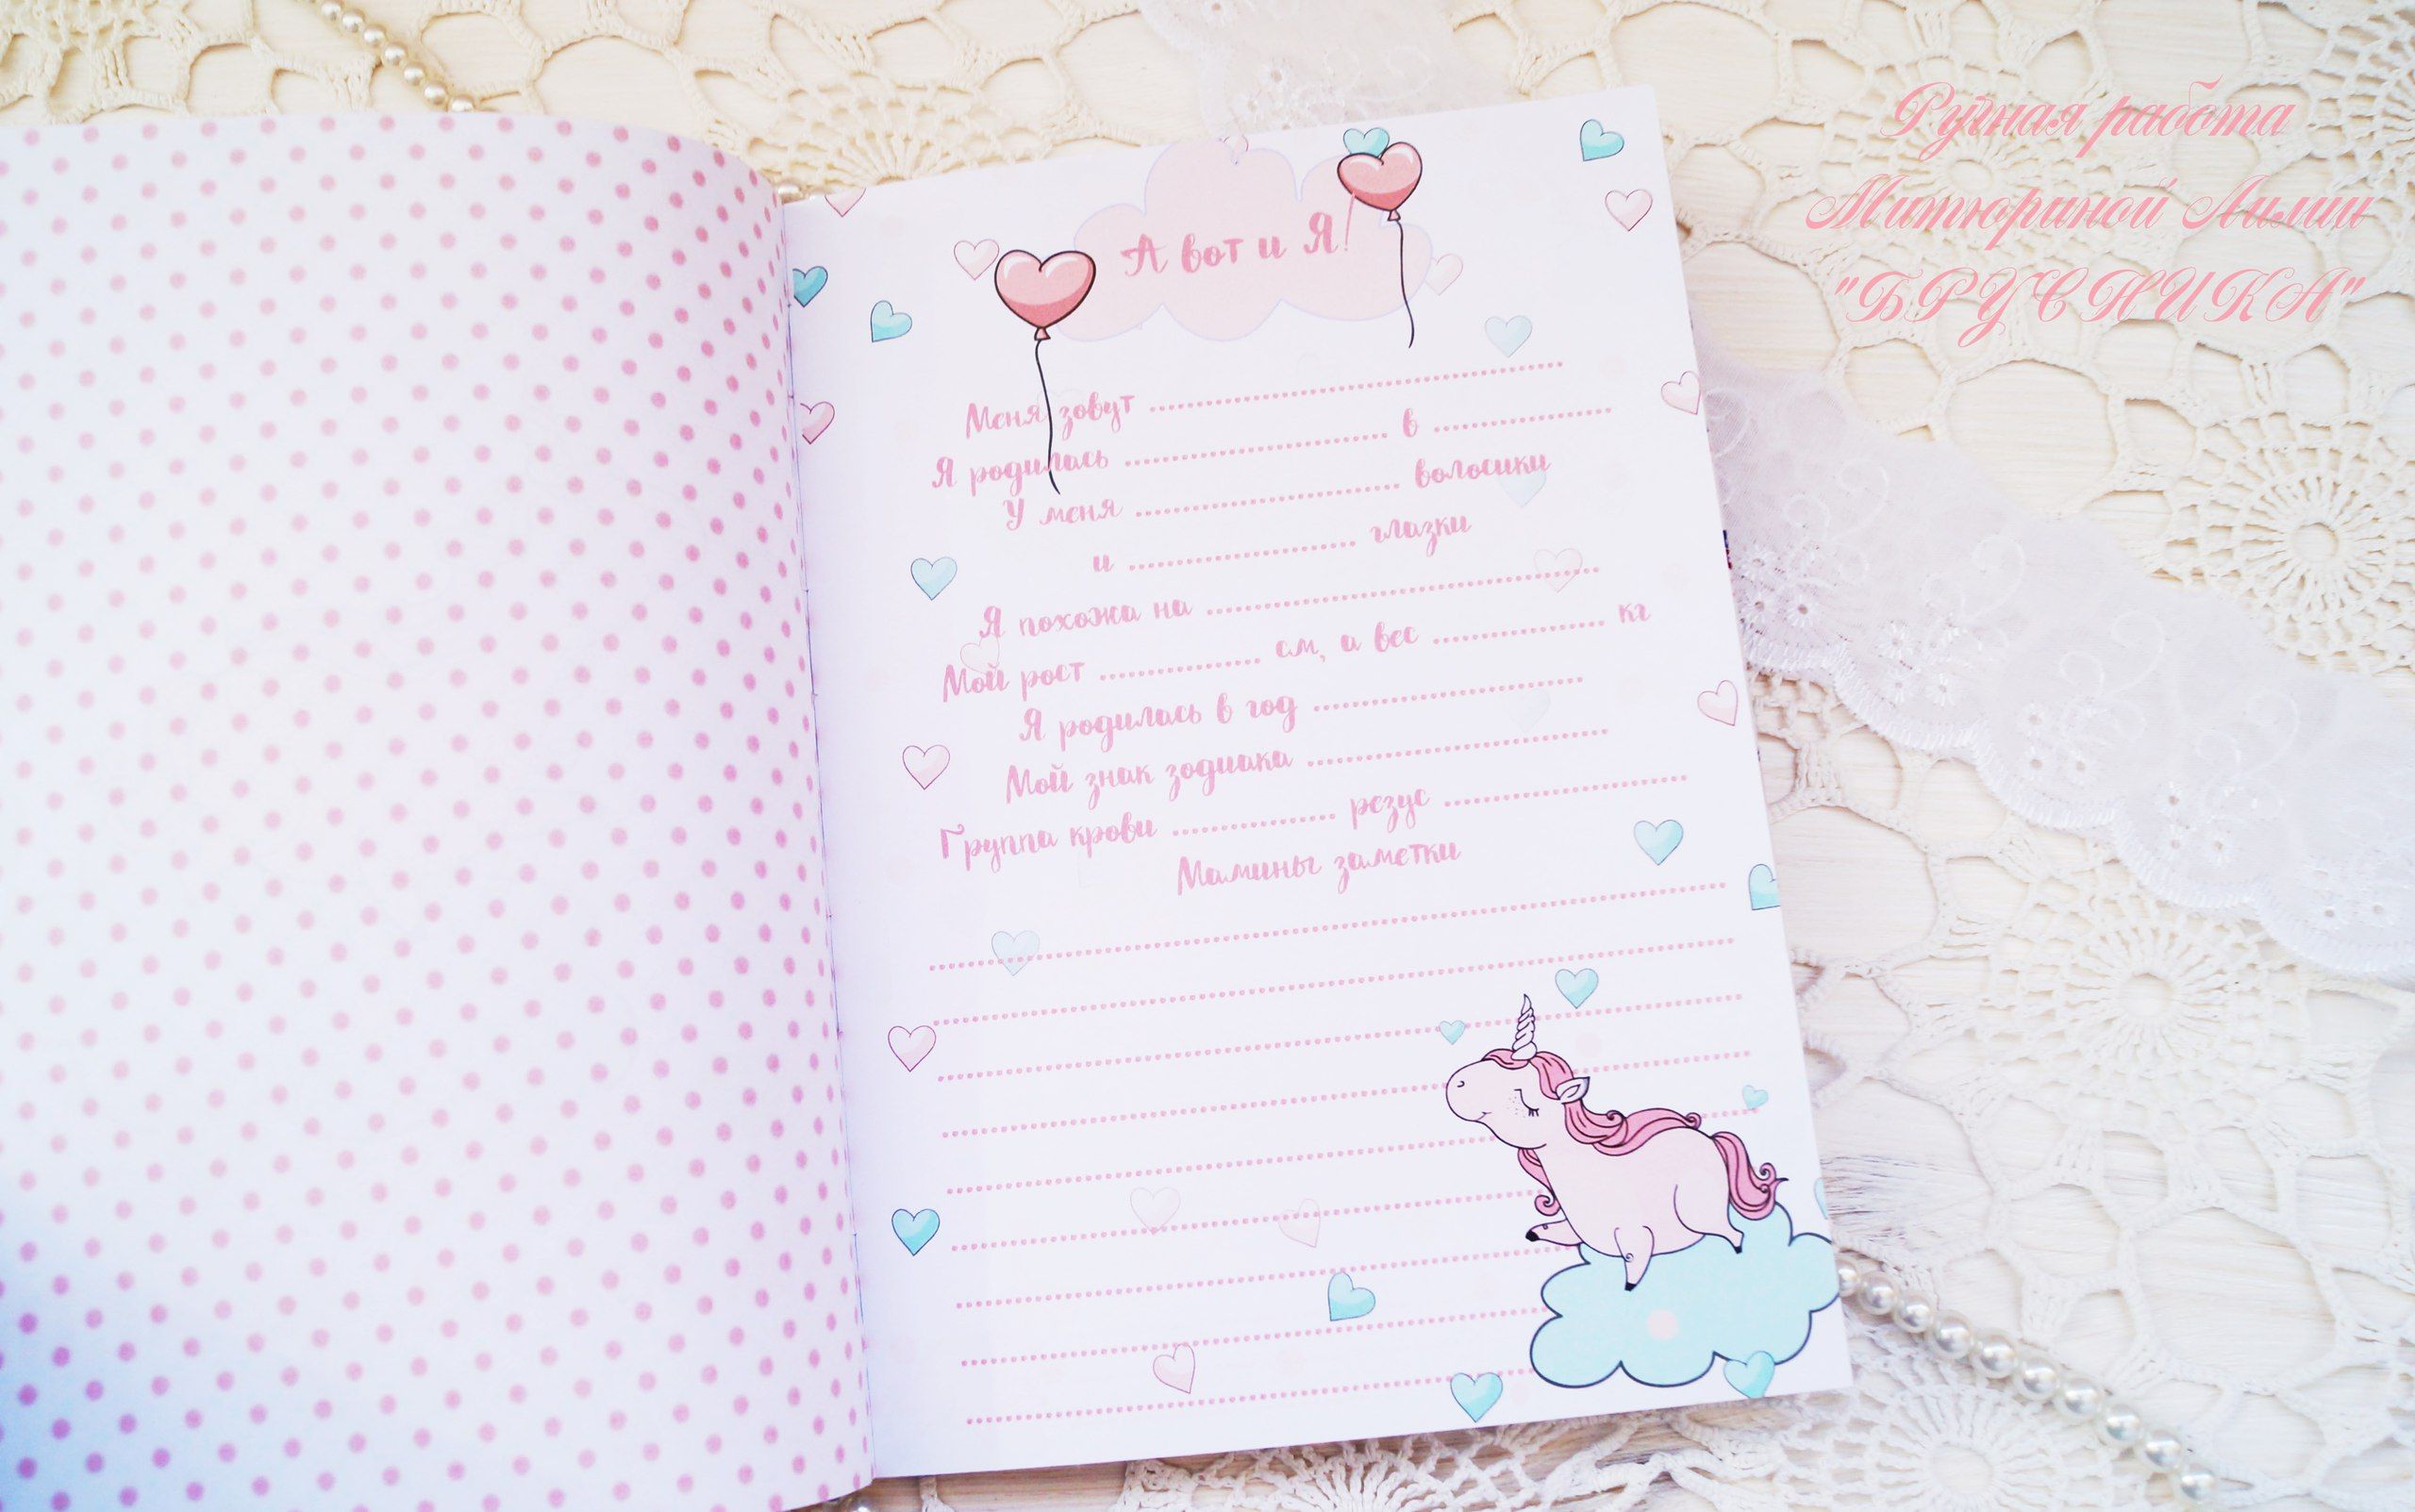 А вот и Я!
Меня зовут ........................................
Я родилась .............................. в ....................
У меня .............................. волосики
и .............................. глазки
Я похожа на ........................................
Мой рост .................... см, а вес .................... кг
Я родилась в год ..............................
Мой знак зодиака ..............................
Группа крови .................... резус ..............................
Мамины заметки
Ручная работа
Митюриной Лилии
"БРУСНИКА"